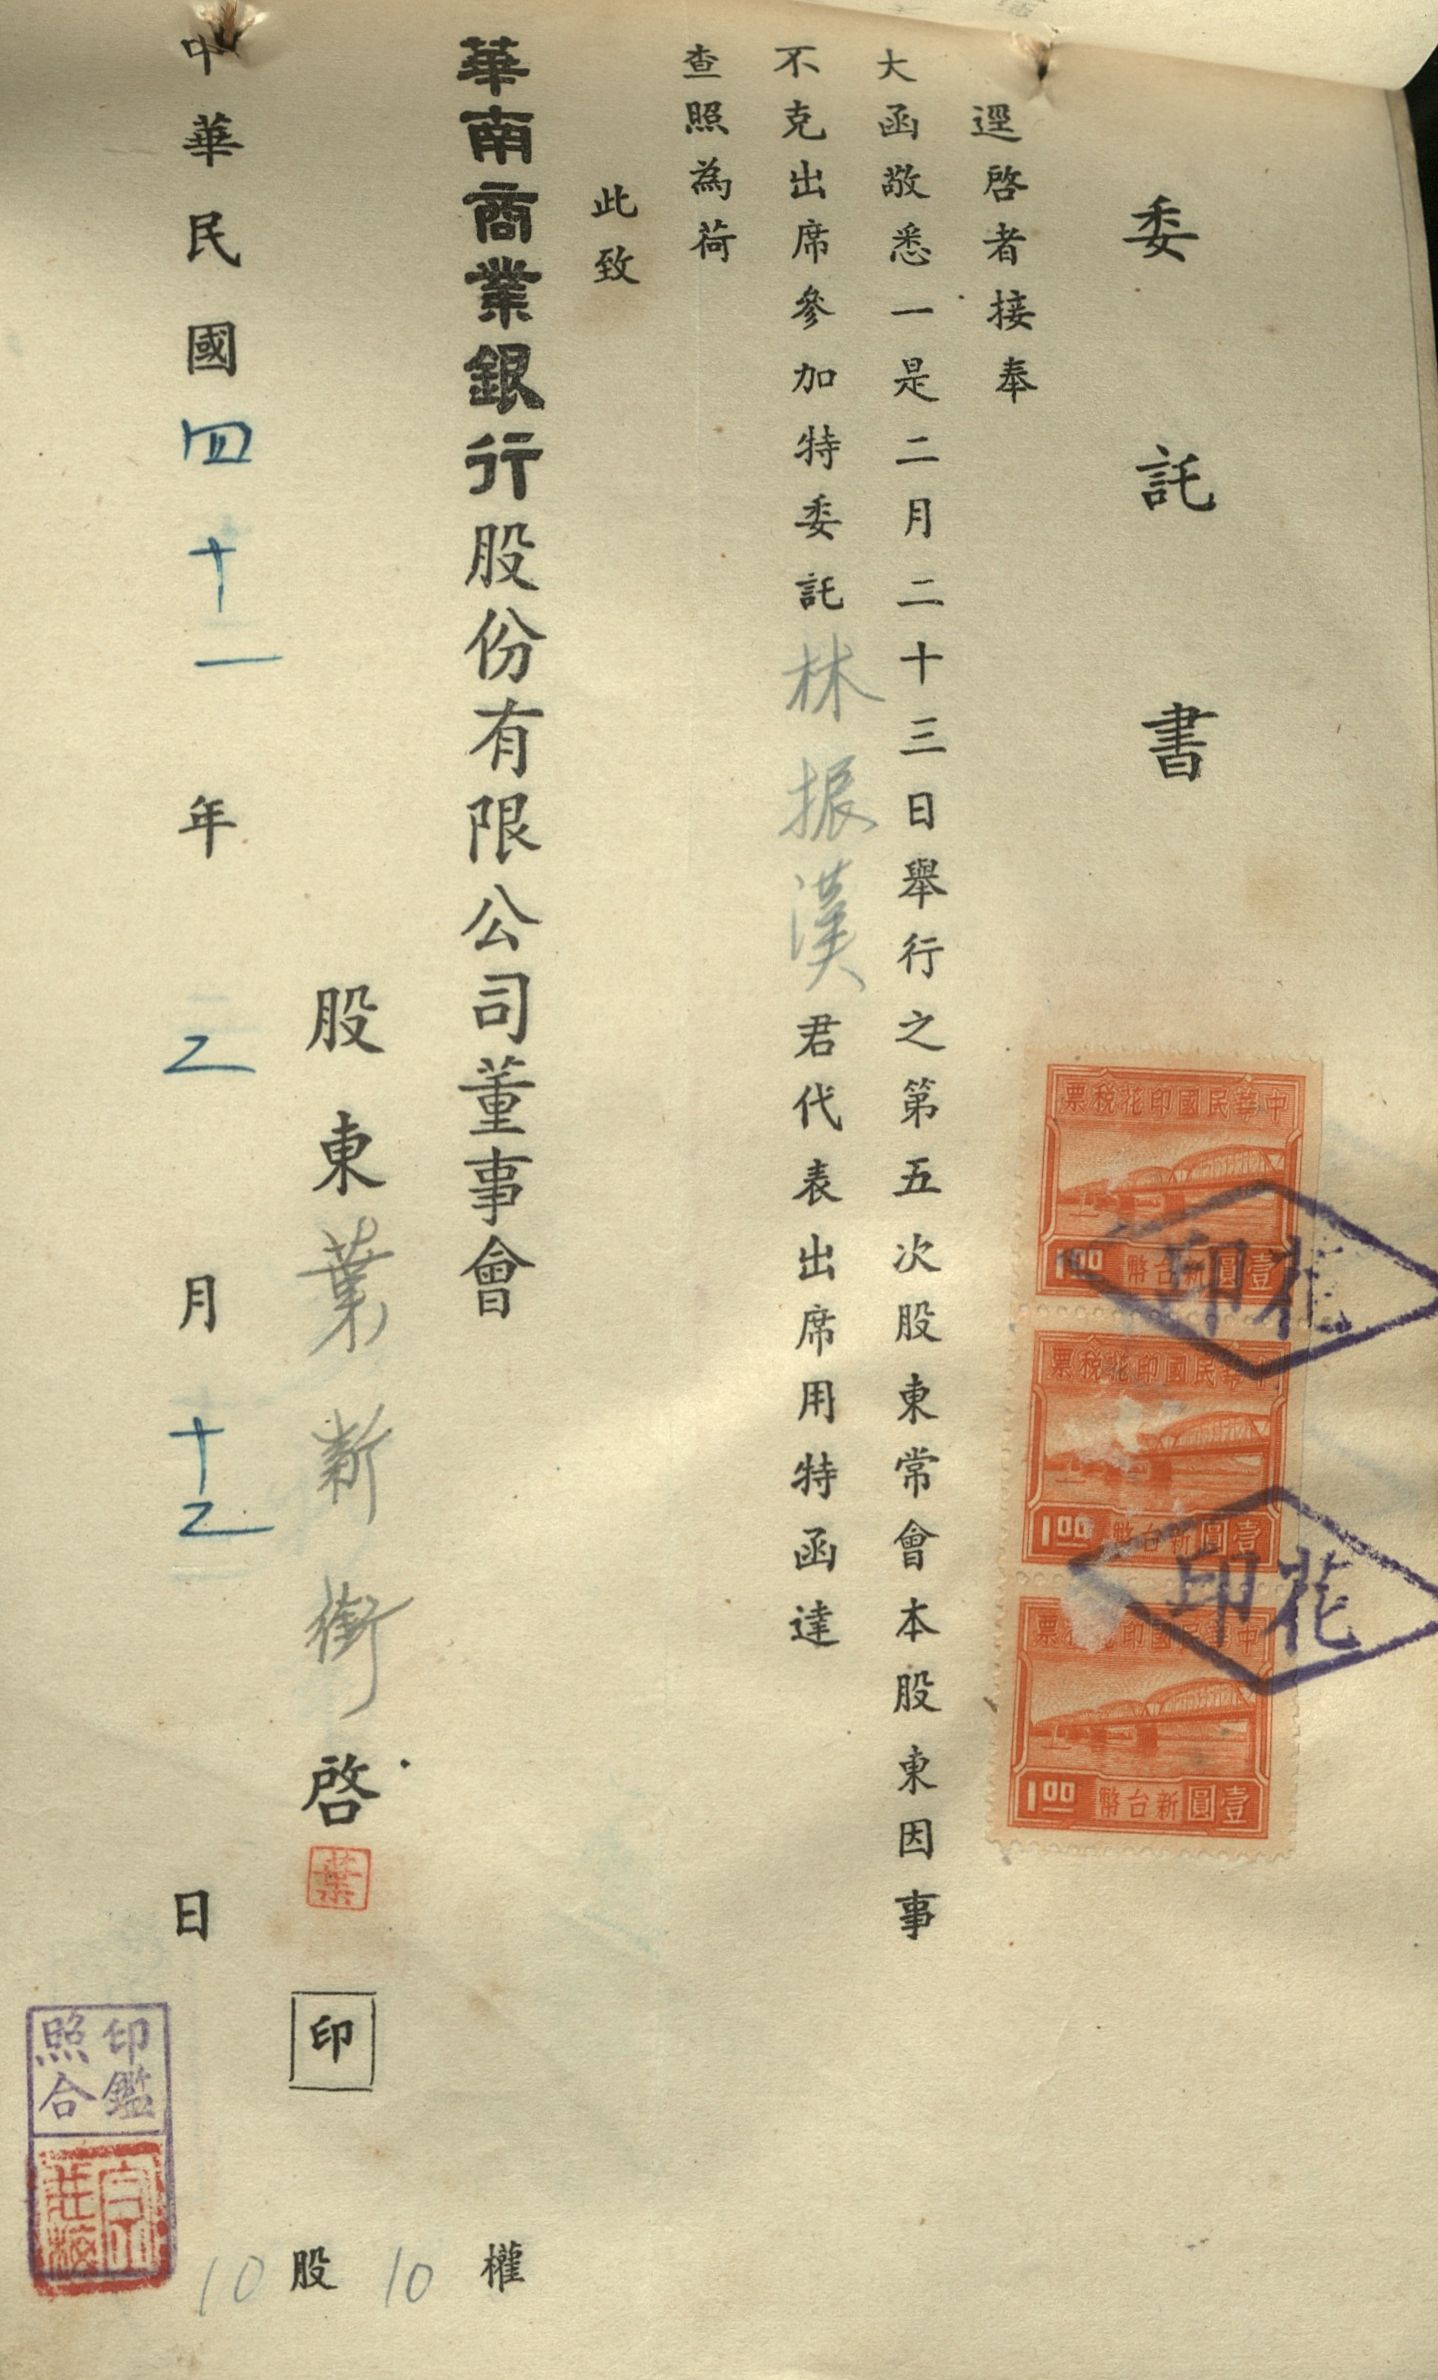 委託書
逕啓者接奉
大函敬悉一是二月二十三日舉行之第五次股東常會本股東因事
不克出席參加特委託林振漢君代表出席用特函達
查照為荷
此致
華南商業銀行股份有限公司董事會
股東葉新衝啓
葉
印
中華民國四十一年二月十二日
10股10權
印鑑
照合
中華民國印花稅票
壹圓新台幣
1.00
中華民國印花稅票
壹圓新台幣
1.00
中華民國印花稅票
壹圓新台幣
1.00
印花
印花